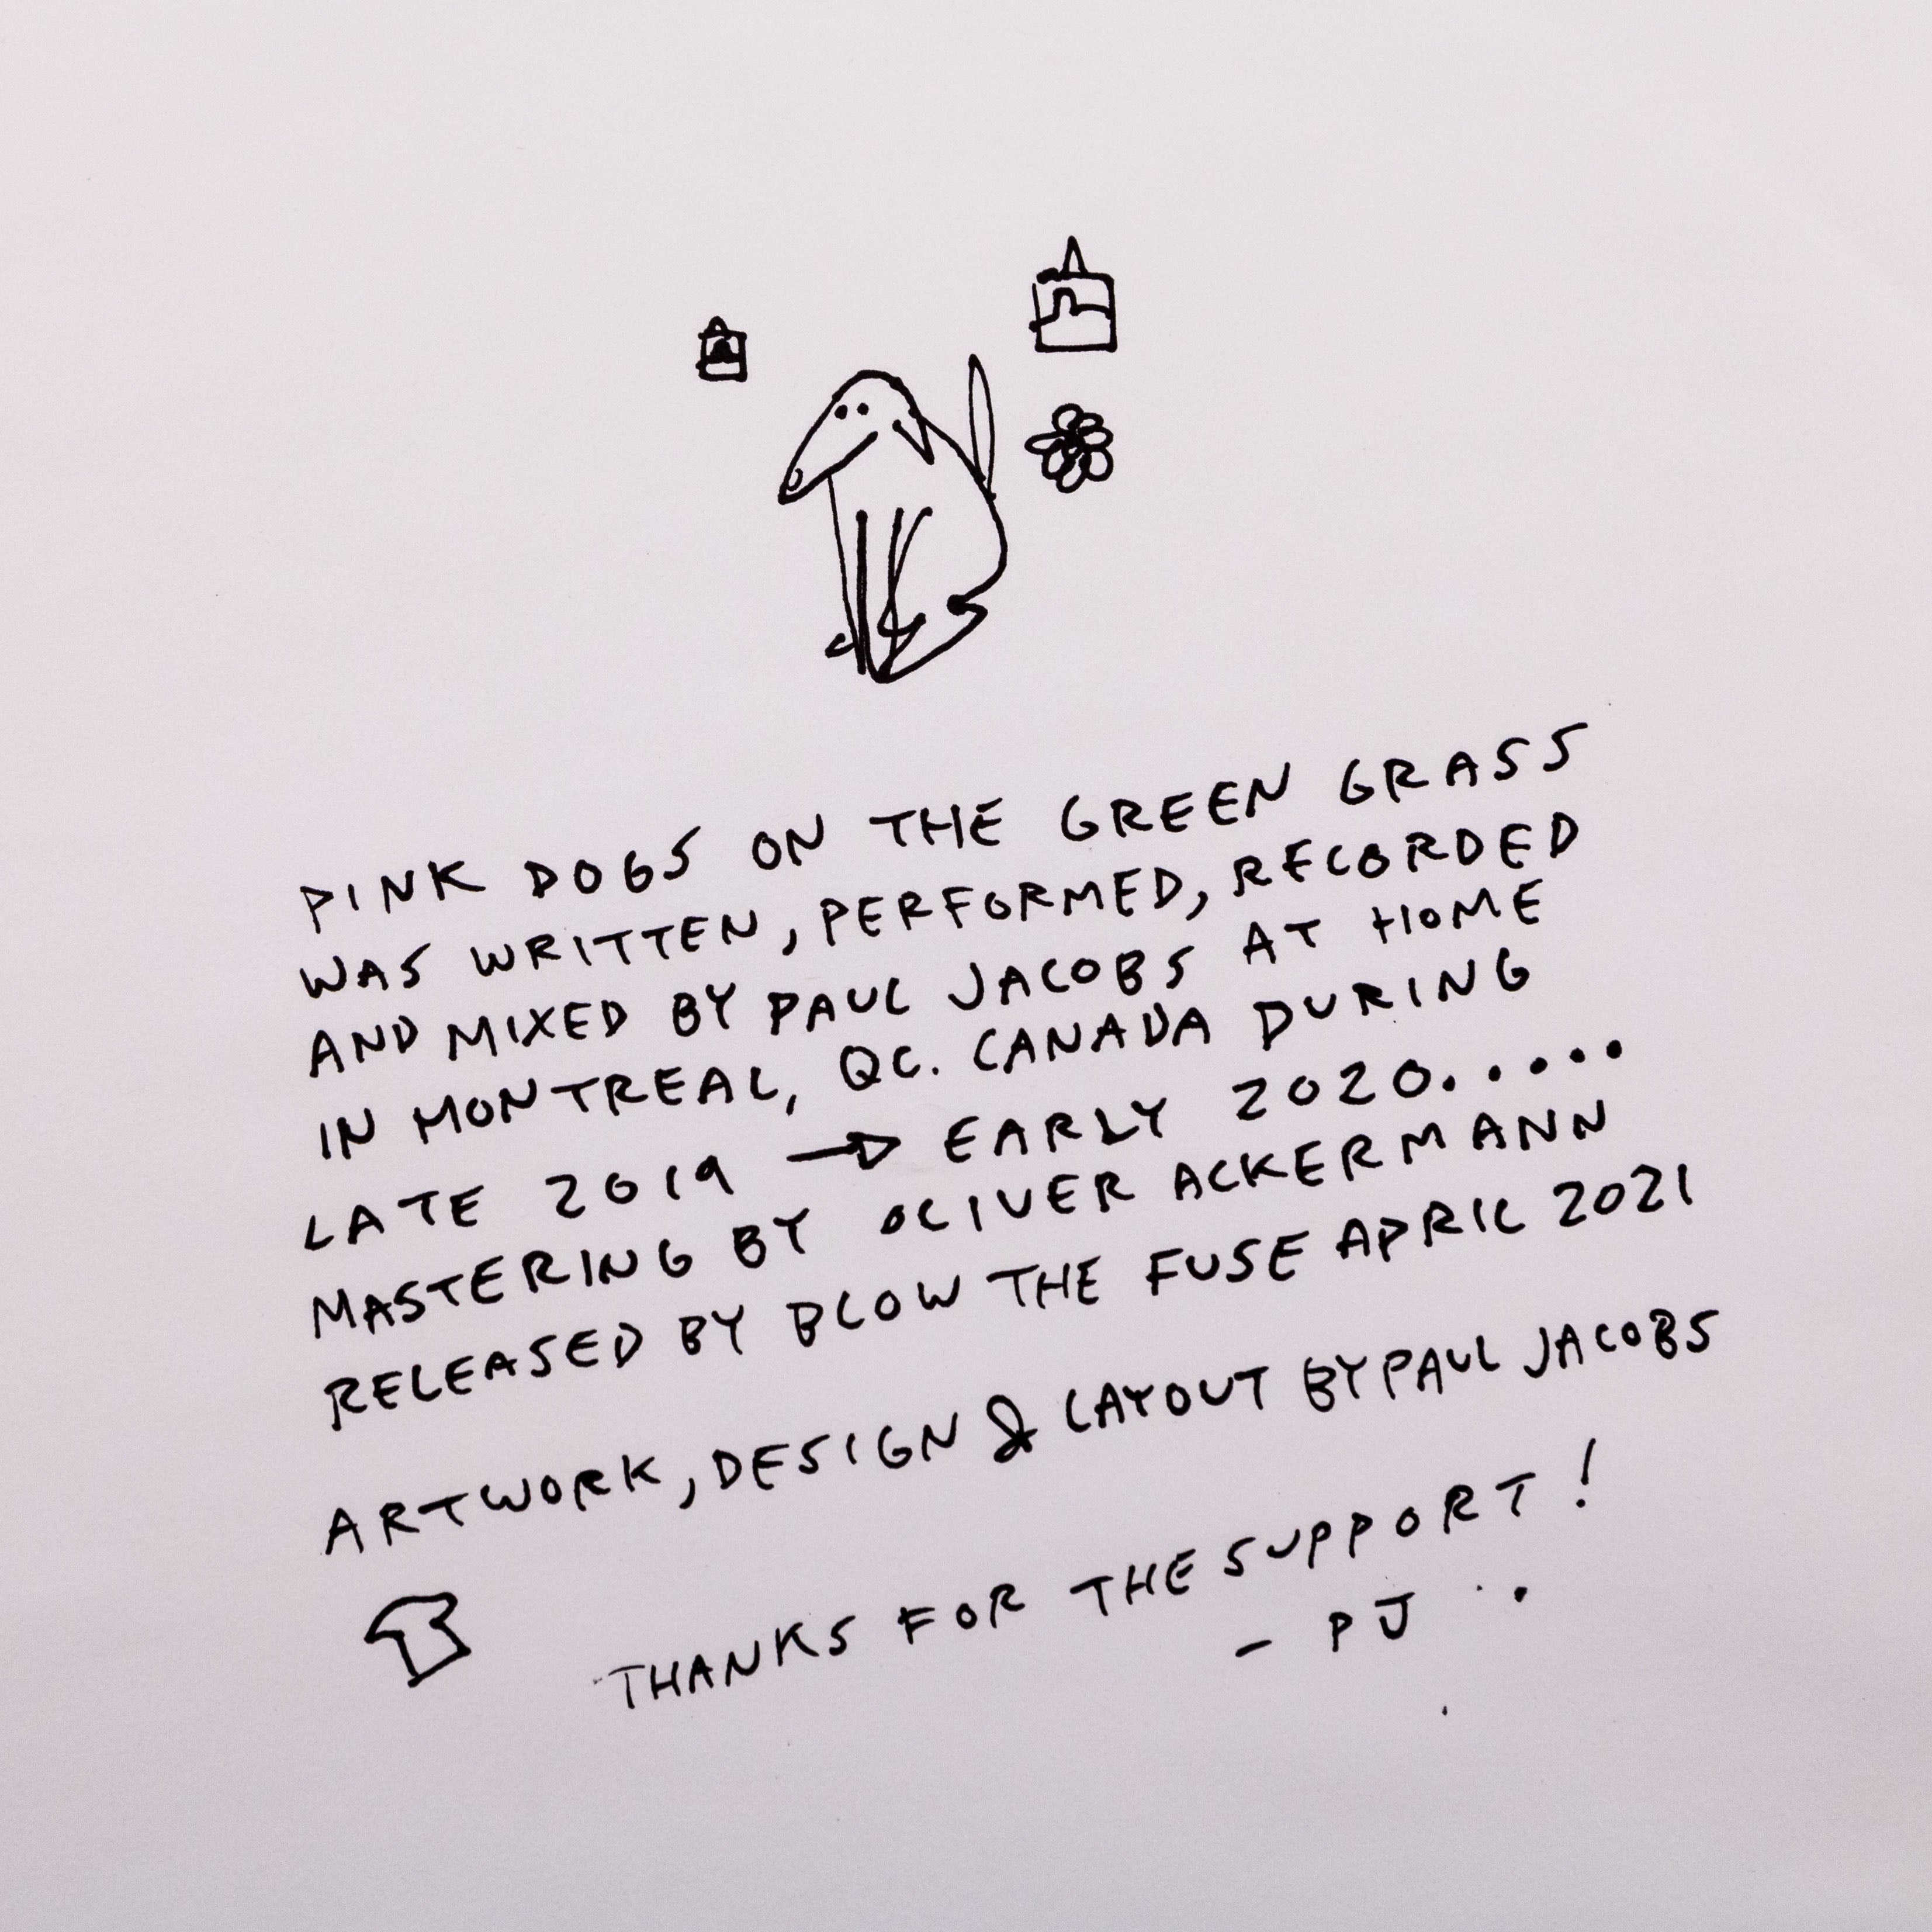 PINK DOGS ON THE GREEN GRASS
WAS WRITTEN, PERFORMED, RECORDED
AND MIXED BY PAUL JACOBS AT HOME
IN MONTREAL, QC. CANADA DURING
LATE 2019 → EARLY 2020.....
MASTERING BY OLIVER ACKERMANN
RELEASED BY BLOW THE FUSE APRIL 2021
ARTWORK, DESIGN & LAYOUT BY PAUL JACOBS
THANKS FOR THE SUPPORT!
- PJ